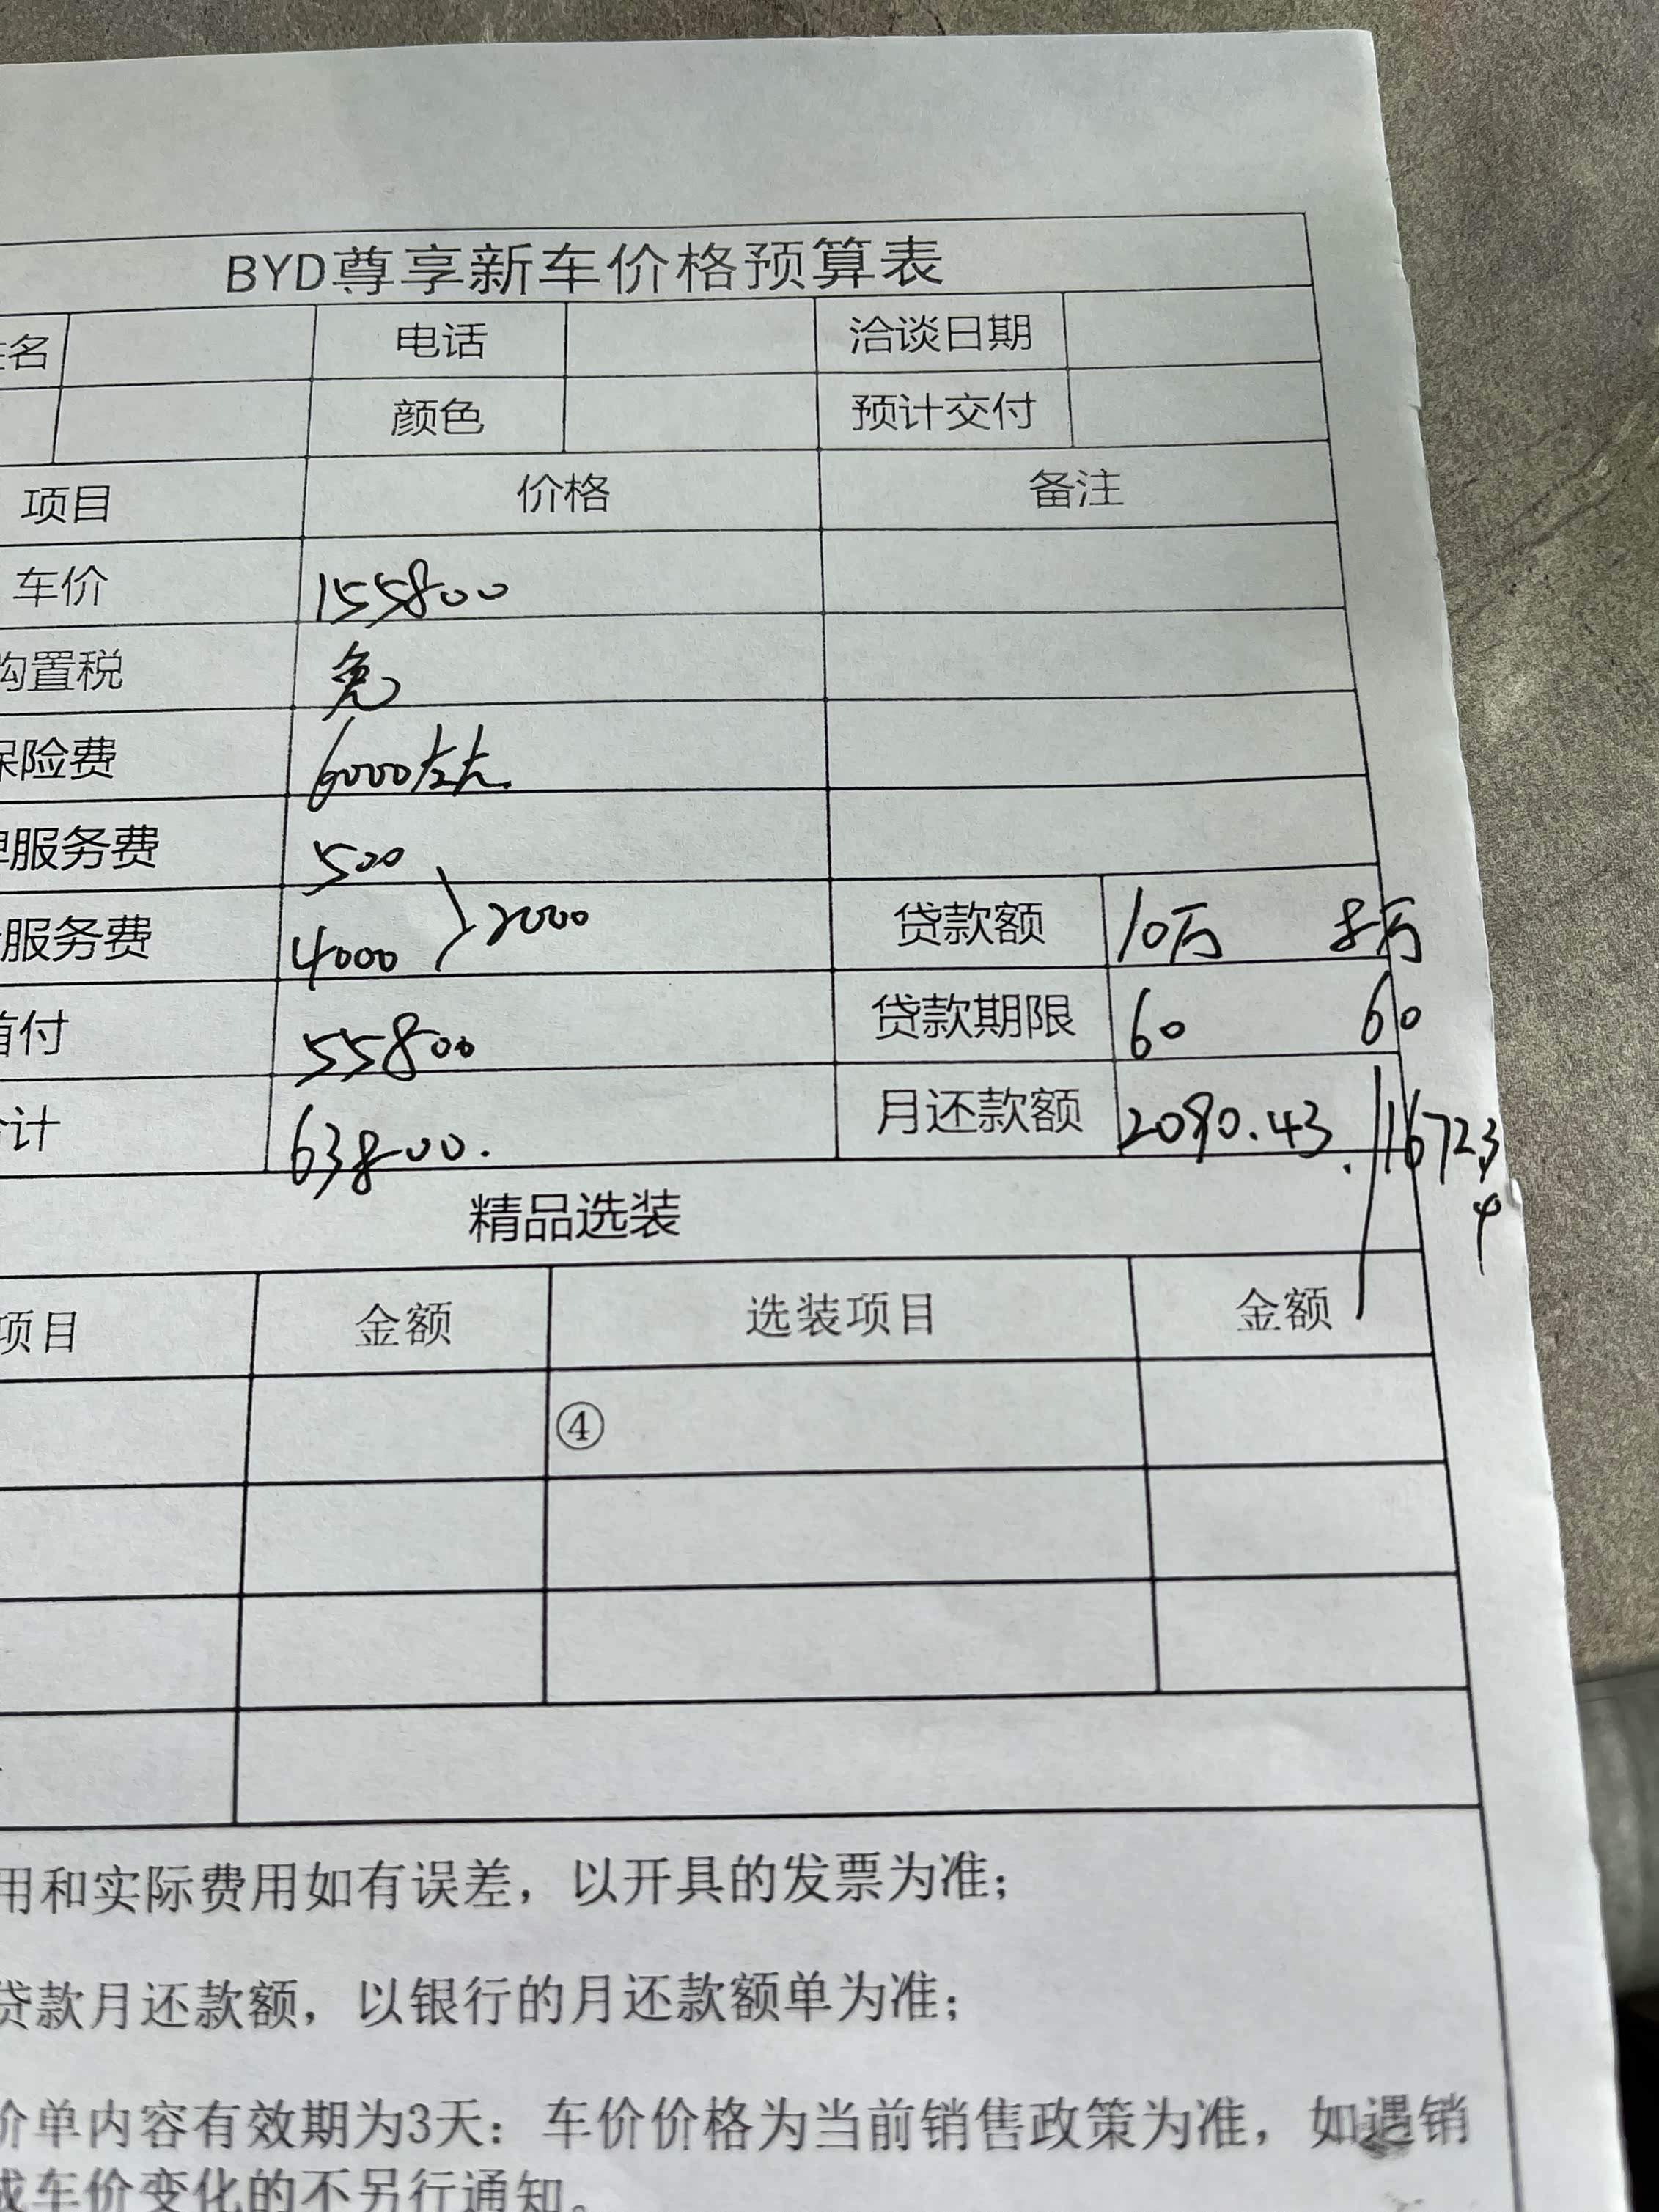 BYD尊享新车价格预算表
名 电话 洽谈日期
颜色 预计交付
项目 价格 备注
车价 155800
购置税 免
保险费 6000左右.
牌服务费 500
服务费 4000 }2000 贷款额 10万 8万
首付 55800 贷款期限 60 60
计 63800. 月还款额 2090.43. 16723
4
精品选装
项目 金额 选装项目 金额
④
用和实际费用如有误差，以开具的发票为准；
贷款月还款额，以银行的月还款额单为准；
价单内容有效期为3天：车价价格为当前销售政策为准，如遇销
成车价变化的不另行通知。